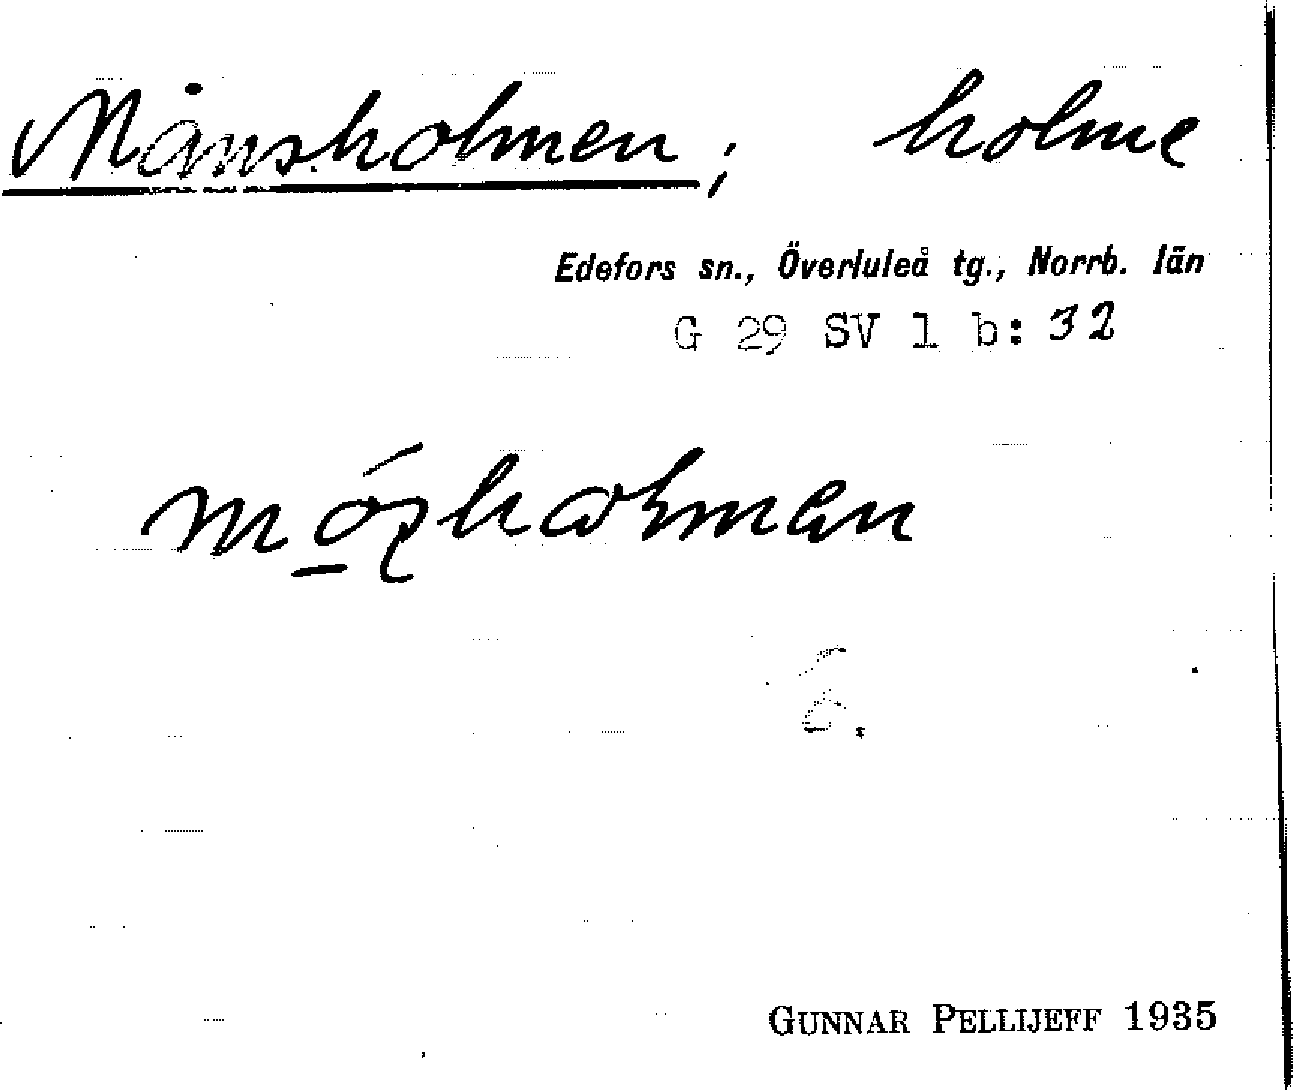 Månsholmen; holme
Edefors sn., Överluleå tg., Norrb. län
G 29 SV 1 b: 32
GUNNAR PELLIJEFF 1935